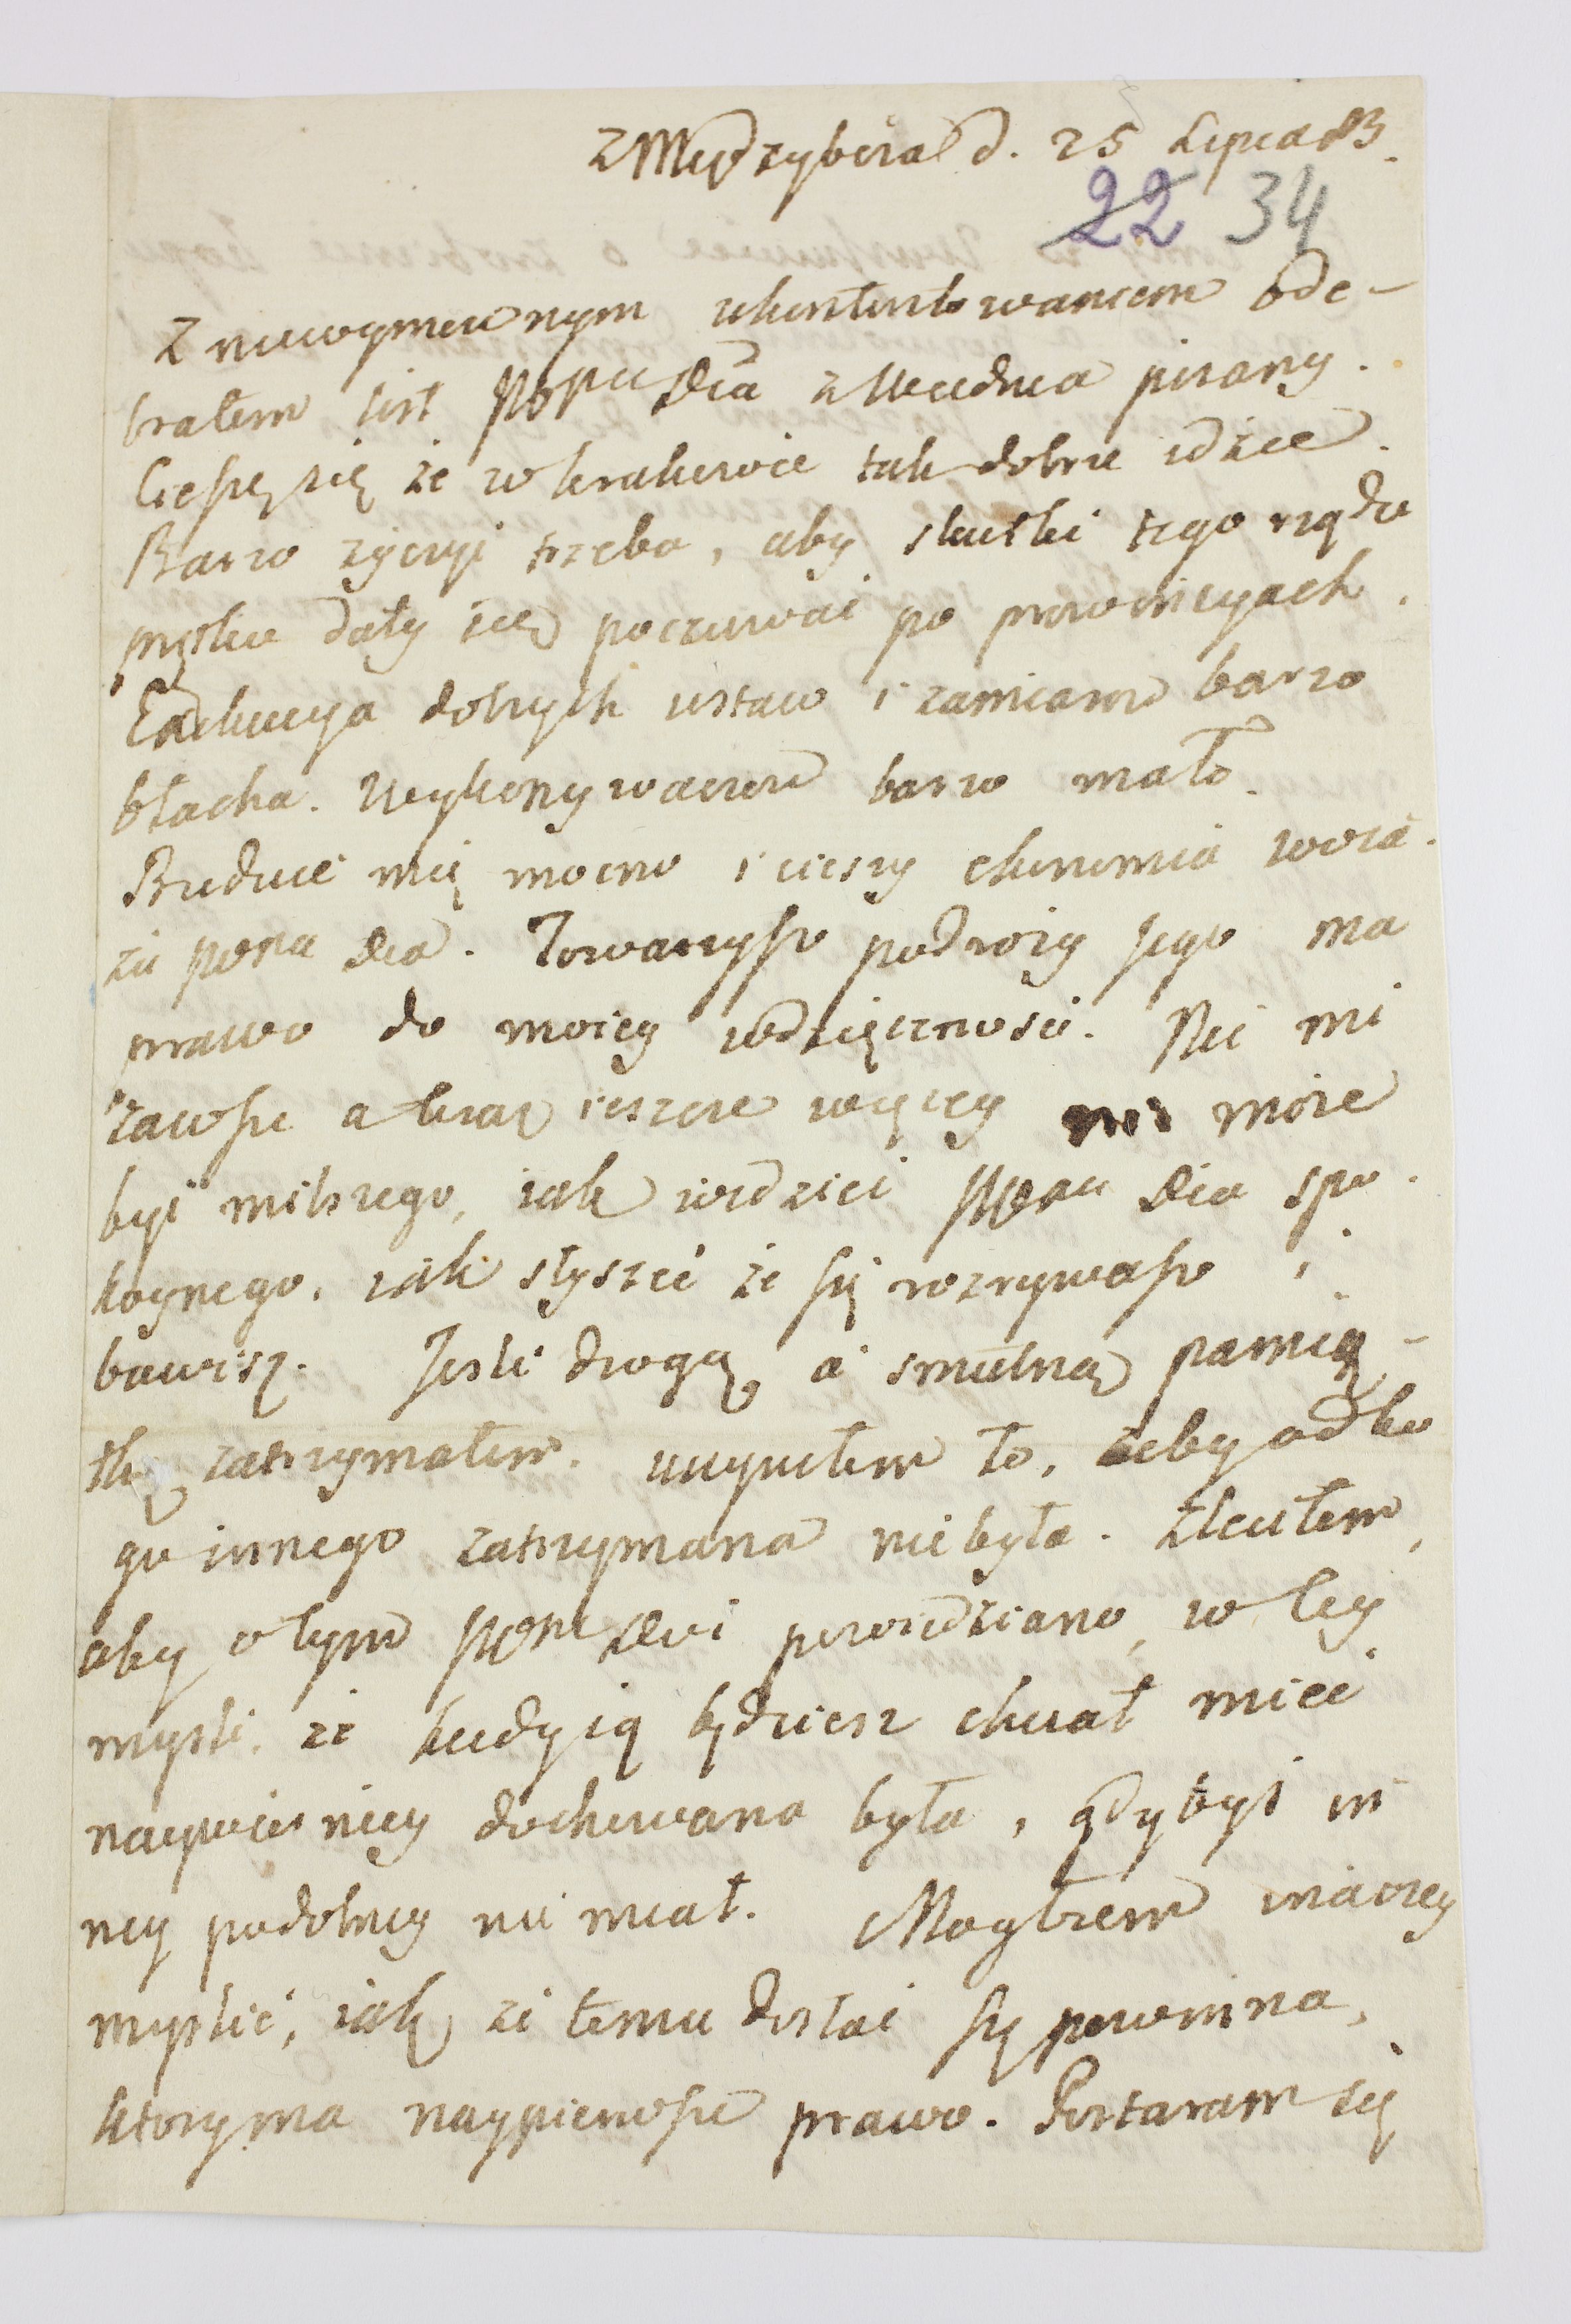 z Międzyboża d. 25 Lipca 83.
22 34
Z niewymownym ukontentowaniem ode-
brałem list z Wiednia pisany.
Cieszę się że w krakowie tak dobrze idzie.
Barzo życzyć trzeba, aby skutki tego rządu
prętko dały się poczuwać po prowincyach.
Exekucya dobrych ustaw i zamiarow barzo
błacha. Wykonywaczow barzo mało.
mię mocno i cieszy ekonomia woia-
żu pona Dia. Towarzysz podroży jego ma
prawo do moiey wdzięcznosci. Nic mi
zawsze a teraz ieszcze więcey może
być milszego, iak widzieć Dia spo-
koynego, iak słyszeć że się rozrywasz i
bawisz. Jesli drogą a smutną pamią-
tkę zatrzymałem. uczyniłem to, żeby od ko
go innego zatrzymana nie była. Zleciłem,
aby o tym powiedziano, w tey
mysli, że kiedy ią będziesz chciał mieć
naywierniey dochowana była, gdybyś in
ney podobney nie miał. Mogłżem inaczey
myslić, iak że temu dostać się powinna,
ktory ma naypierwsze prawo. Postaram się